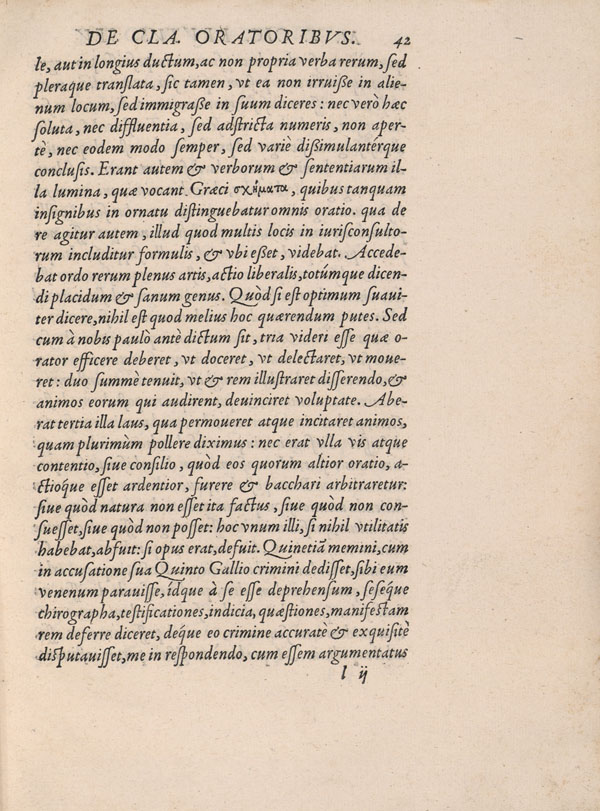 DE CLA. ORATORIBVS. 42
le, aut in longius ductum, ac non propria verba rerum, sed
pleraque translata, sic tamen, vt ea non irruiße in alie-
num locum, sed immigraße in suum diceres : nec verò hæc
soluta, nec diffluentia, sed adstricta numeris, non aper-
tè, nec eodem modo semper, sed variè dißimulanterque
conclusis. Erant autem & verborum & sententiarum il-
la lumina, quæ vocant Græci σχήματα, quibus tanquam
insignibus in ornatu distinguebatur omnis oratio. qua de
re agitur autem, illud quod multis locis in iurisconsulto-
rum includitur formulis, & vbi eßet, videbat. Accede-
bat ordo rerum plenus artis, actio liberalis, totúmque dicen-
di placidum & sanum genus. Quòd si est optimum suaui-
ter dicere, nihil est quod melius hoc quærendum putes. Sed
cum à nobis paulò antè dictum sit, tria videri esse quæ o-
rator efficere deberet, vt doceret, vt delectaret, vt moue-
ret : duo summè tenuit, vt & rem illustraret disserendo, &
animos eorum qui audirent, deuinciret voluptate. Abe-
rat tertia illa laus, qua permoueret atque incitaret animos,
quam plurimùm pollere diximus : nec erat vlla vis atque
contentio, siue consilio, quòd eos quorum altior oratio, a-
ctioq́ue esset ardentior, furere & bacchari arbitraretur:
siue quòd natura non esset ita factus, siue quòd non con-
suesset, siue quòd non posset: hoc vnum illi, si nihil vtilitatis
habebat, abfuit: si opus erat, defuit. Quinetiã memini, cum
in accusatione sua Quinto Gallio crimini dedisset, sibi eum
venenum parauisse, ídque à se esse deprehensum, seseq́ue
chirographa, testificationes, indicia, quæstiones, manifestam
rem deferre diceret, deq́ue eo crimine accuratè & exquisitè
disputauisset, me in respondendo, cum essem argumentatus
l ij